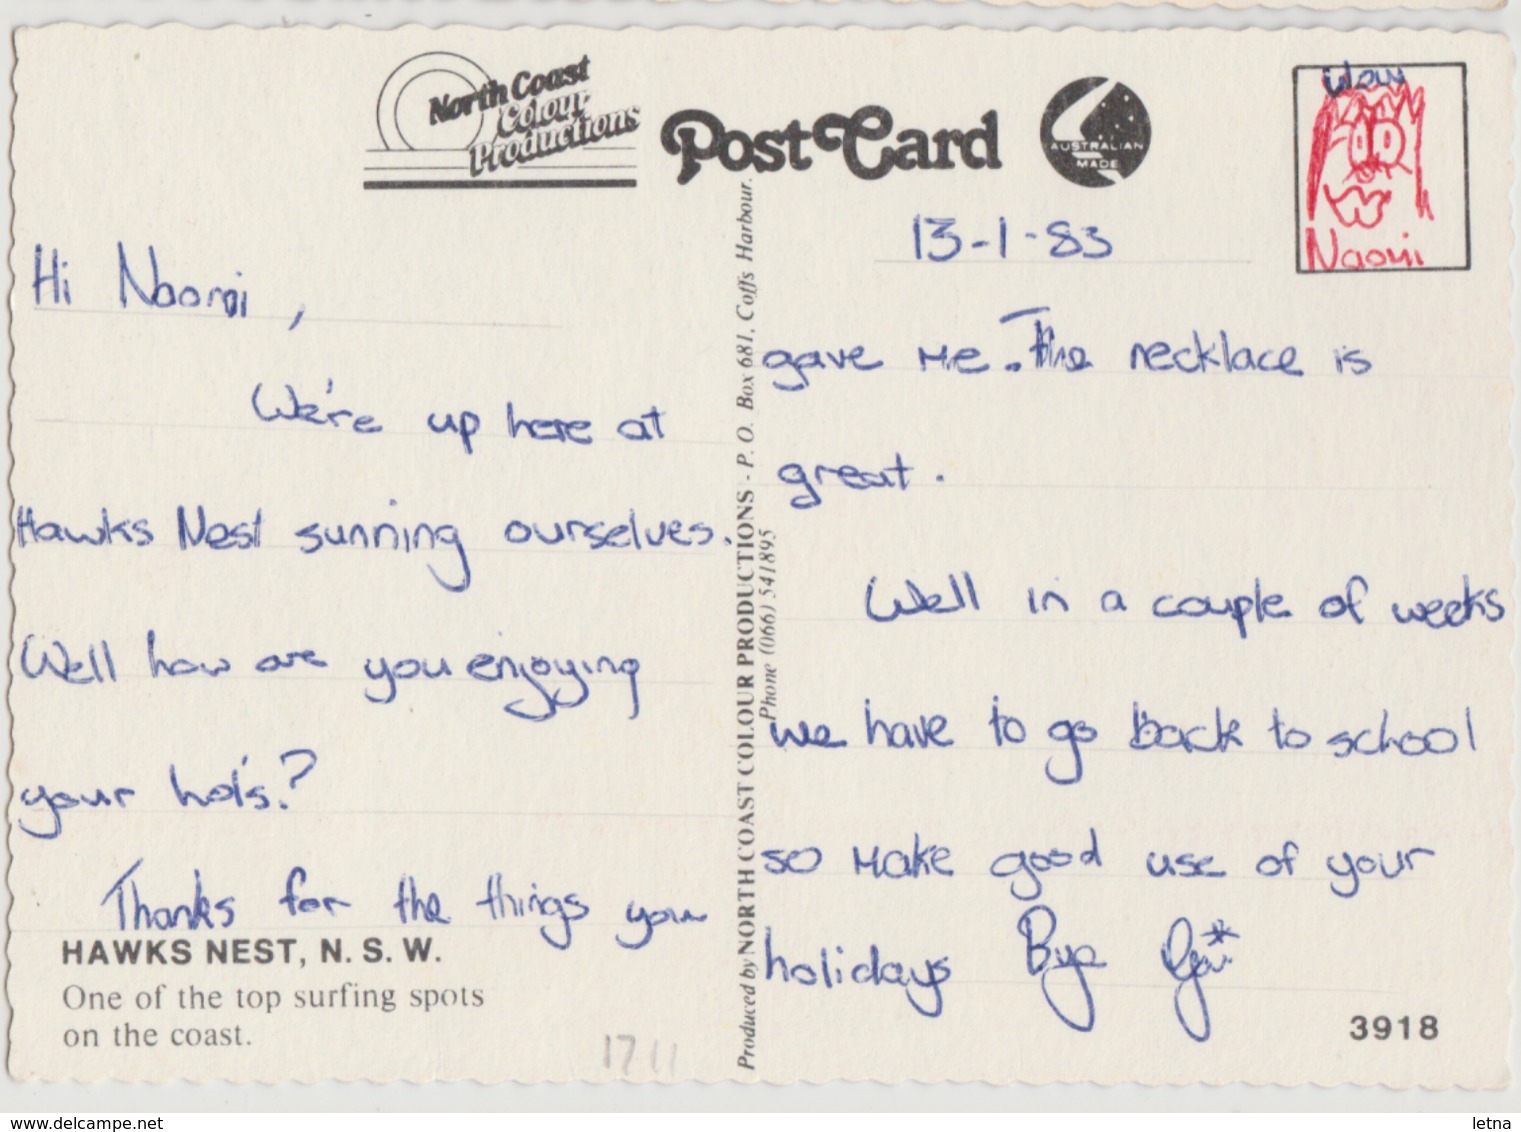 North Coast
Colour
Productions
PostCard
AUSTRALIAN
MADE
wow
Naomi
13-1-83
Hi Naomi,
We're up here at
Hawks Nest sunning ourselves.
Well how are you enjoying
your hol's?
Thanks for the things you
HAWKS NEST, N. S. W.
One of the top surfing spots
on the coast.
1711
Produced by NORTH COAST COLOUR PRODUCTIONS - P. O. Box 681, Coffs Harbour.
Phone (066) 541895
gave me. The necklace is
great.
Well in a couple of weeks
we have to go back to school
so make good use of your
holidays Bye
3918
delcampe.net
letna